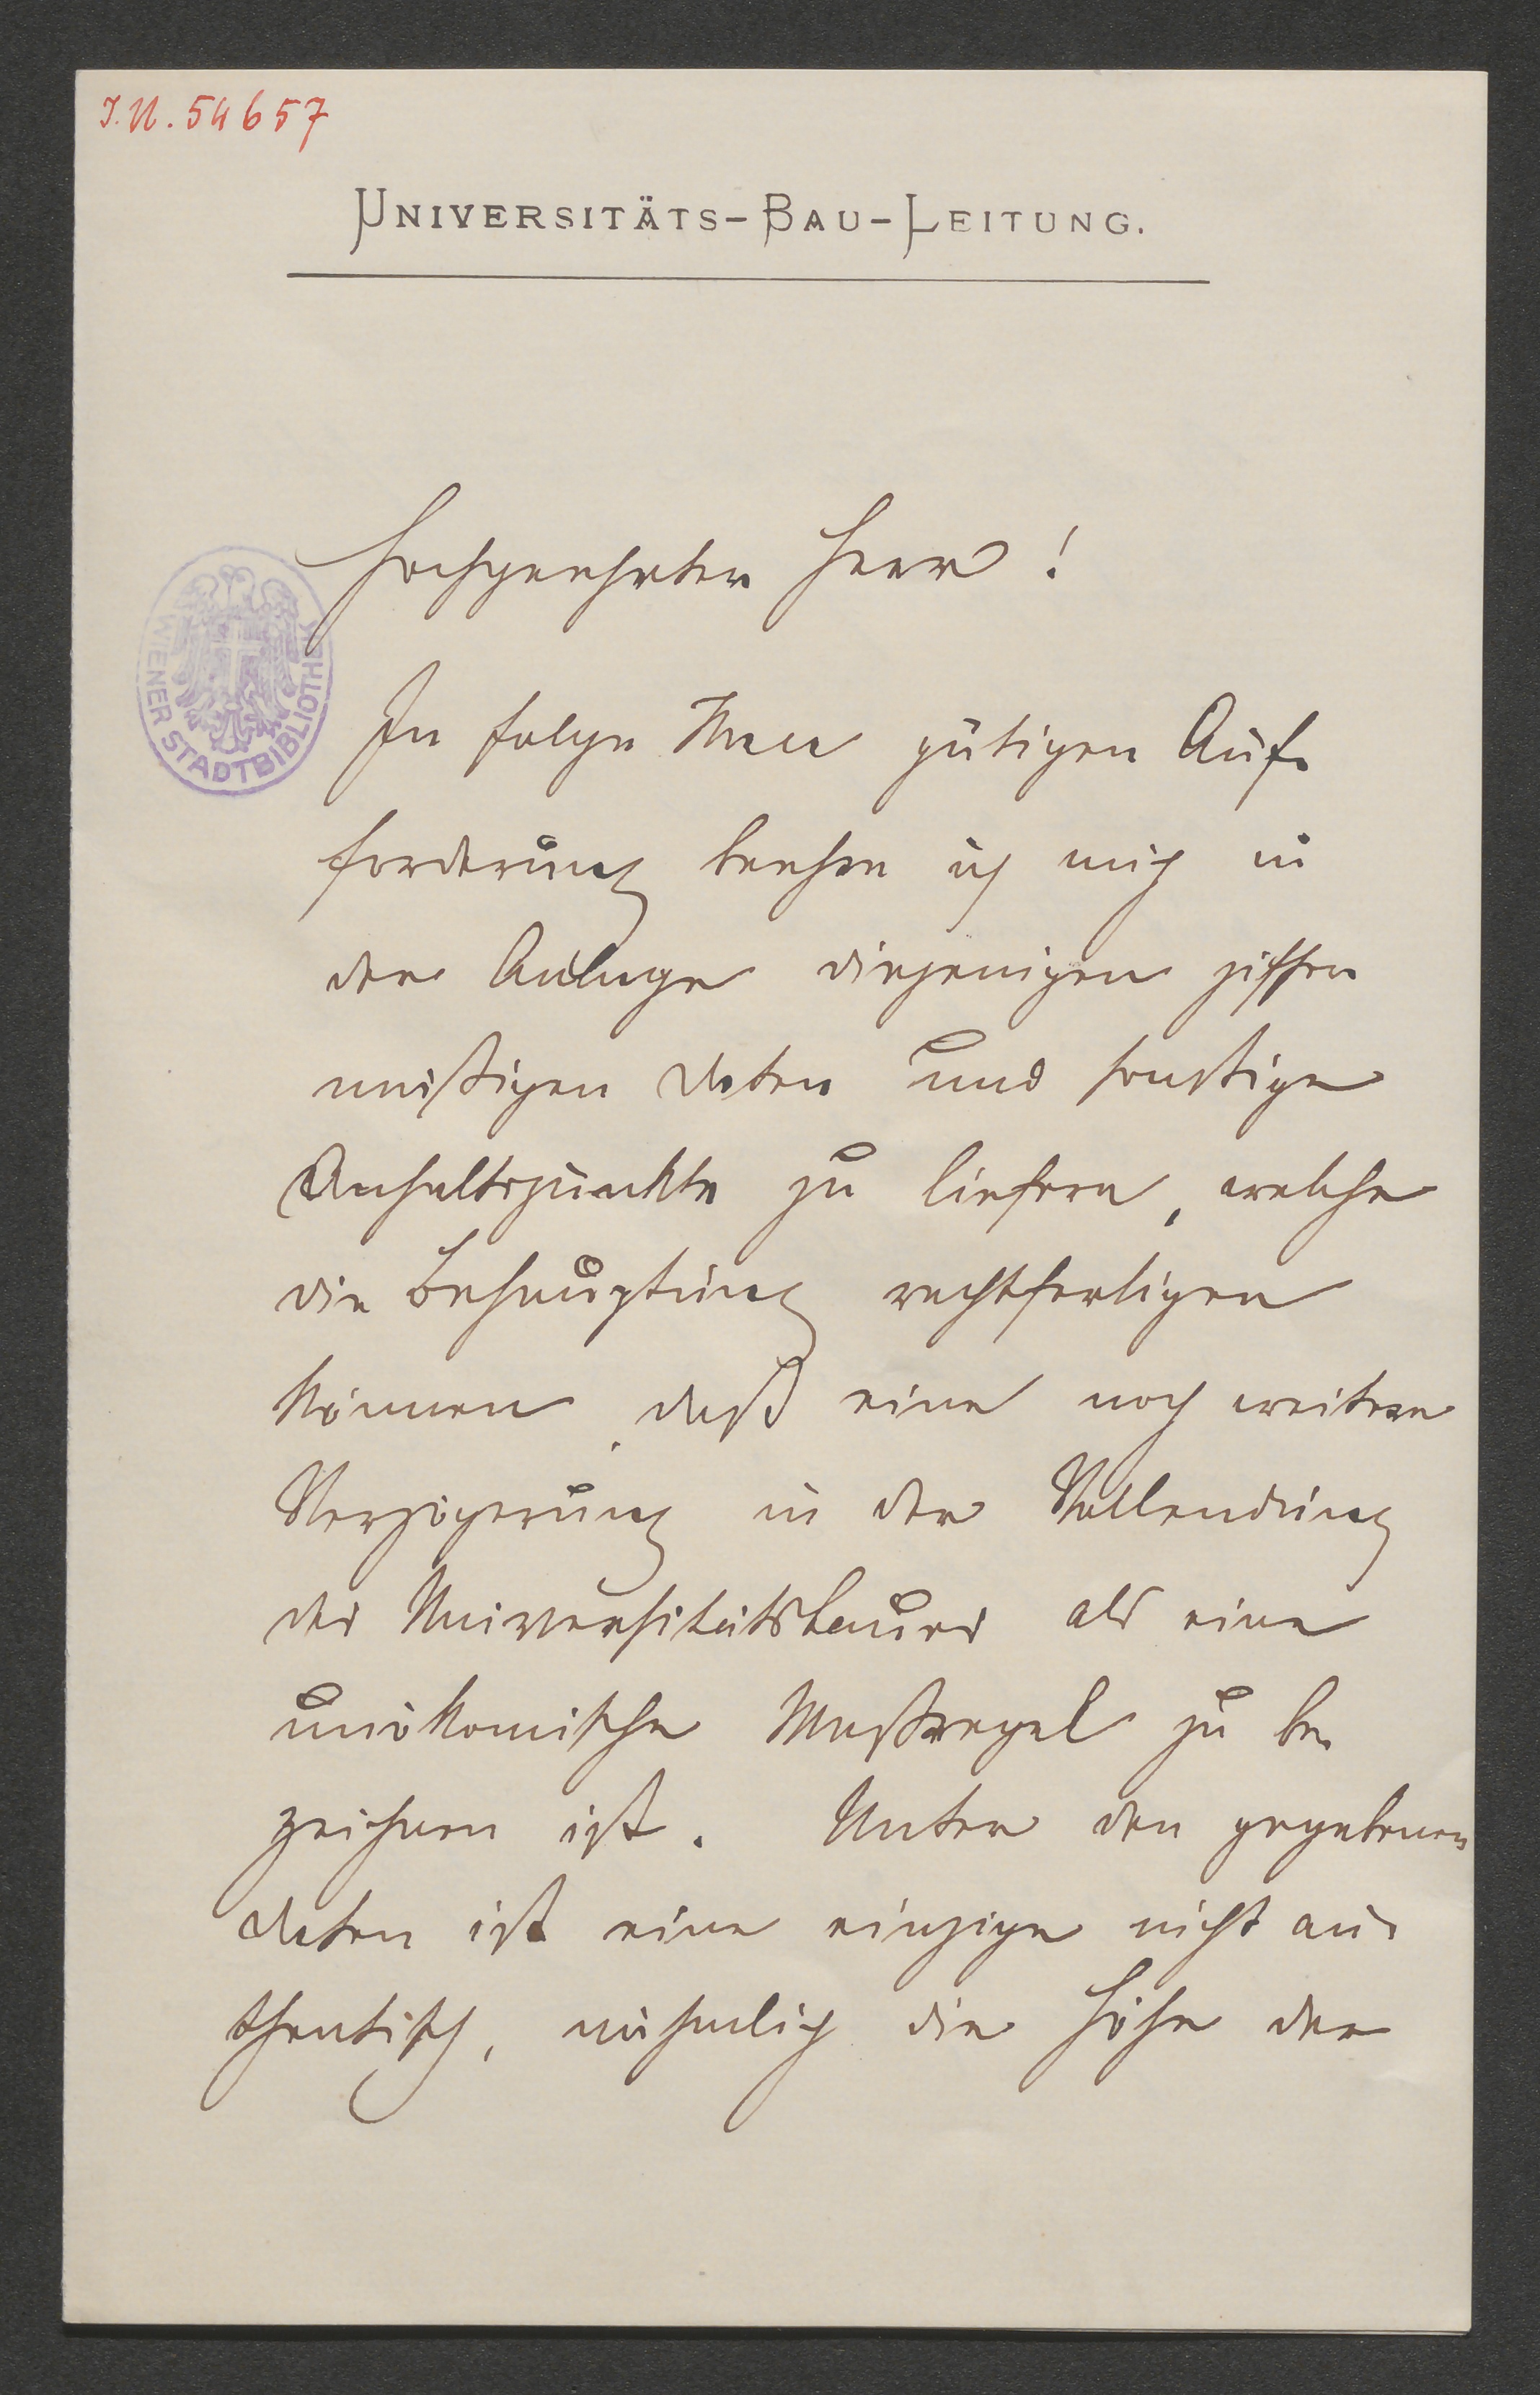 J.N. 54657
UNIVERSITÄTS-BAU-LEITUNG.
Hochgeehrter Herr!
WIENER STADTBIBLIOTHEK
In folge Ihrer gütigen Auf-
forderung beehre ich mich in
der Anlage diejenigen ziffer
mäßigen Daten und sonstige
Anhaltspunkte zu liefern, welche
die Behauptung rechtfertigen
können, daß eine noch weitere
Verzögerung in der Vollendung
des Universitätsbaues als eine
unökomische Maßregel zu be-
zeichnen ist. Unter den gegebenen
Daten ist eine einzige nicht au-
thentisch, nähmlich die Höhe der